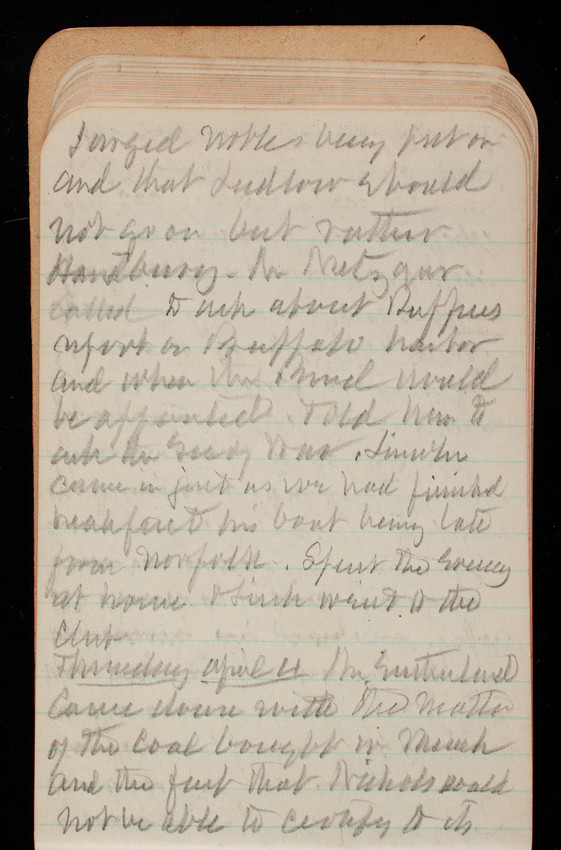 I urged Nobles being put on
and that Ludlow should
not go on but rather
Handbury. Mr Metzgar
called to ask about Ruffners
report on Buffalo harbor
and when the Board would
be appointed. Told him to
ask the Secy War. Lincoln
came in just as we had finished
breakfast his boat being late
from Norfolk. Spent the Evening
at home & Linh went to the
Club.
Thursday April 4 Mr
Came down with the matter
of the Coal bought in March
and the fact that Nichols would
not be able to certify to its